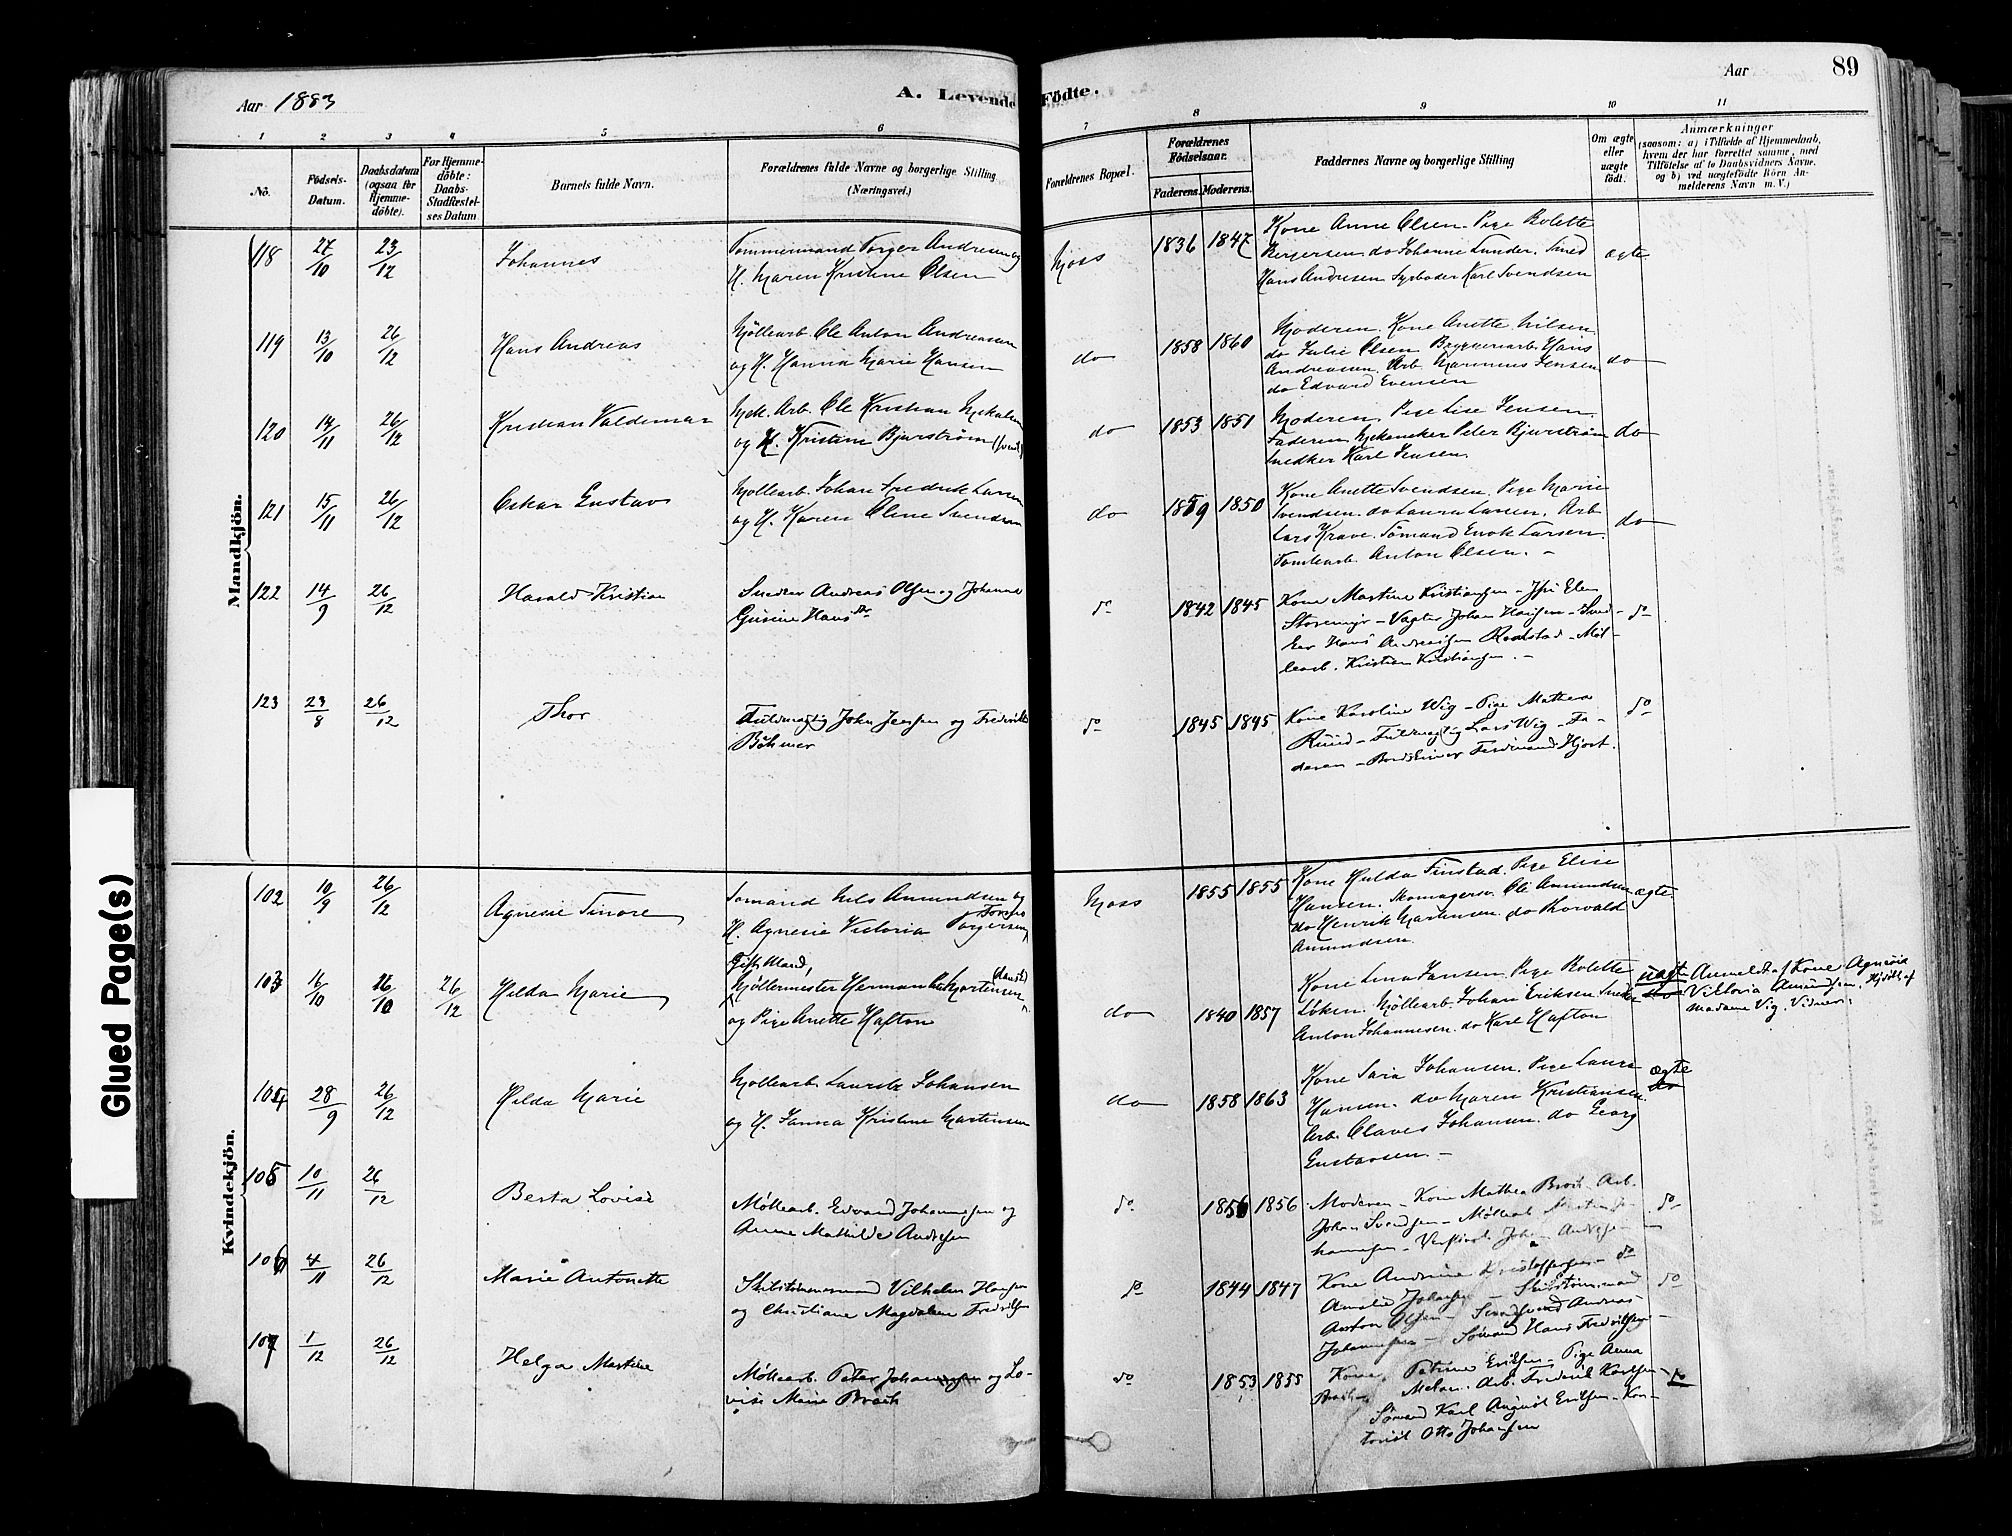 89
Aar 1883
A. Levende Födte.
Aar
1 2 3 4 5 6 7 8 9 10 11
No.
Födsels-Datum.
Daabsdatum (ogsaa for Hjemme-döbte).
For Hjemme-döbte: Daabs-Stadfæstel-ses Datum
Barnets fulde Navn.
Forældrenes fulde Navne og borgerlige Stilling (Næringsvei.)
Forældrenes Bopæl.
Forældrenes Födselsaar.
Faderens. Moderens.
Faddernes Navne og borgerlige Stilling
Om ægte eller uægte födt.
Anmærkninger (saasom: a) i Tilfælde af Hjemmedaab, hvem der har forrettet samme, med Tilföielse af to Daabsvidners Navne, og b) ved uægtefödte Börn An-melderens Navn m. V.)
Mandkjön.
118 27/10 23/12 Johannes
Tømmermand Torger Andresen og
H. Maren Kristine Olsen
Moss 1836 1847
Kone Anne Olsen. Pige Bolette
Bergersen do Johanne Lunder. Smed
Hans Andresen Karl Svendsen
ægte
119 13/10 26/12 Hans Andreas
Møllearb. Ole Anton Andreasen
og H. Hanna Marie Hansen
do 1858 1860
Moderen. Kone Anette Nilsen
do Julie Olsen Bryggeriarb. Hans
Andreasen. Arb. Marinius Jensen
do Edvard Evensen
do
120 14/11 26/12 Kristian Valdemar
Mek. Arb. Ole Kristian
og H. Kristine Bjurstrøm
do 1853 1851
Moderen. Pige Lise Jensen.
Faderen Mekaniker Peter Bjurstrøm
Snedker Karl Jensen.
do
121 15/11 26/12 Oskar Gustav
Møllearb. Johan Fredrik Larsen
og H. Karen Oline Svendsen
do 1859 1850
Kone Anette Svendsen. Pige Marie
Svendsen. do Laura Larsen. Arb
Lars Krave. Sømand Enok Larsen.
Tomtearb. Anton Olsen. -
do
122 14/9 26/12 Harald Kristian
Snedker Andreas Olsen og Johanne
Gusine Hansdr
do 1842 1845
Kone Martine Kristiansen - Elen
Storemyr - Vagter Johan Hansen - Sned-
ker Hans Andreasen Rodstad - Møl-
learb. Kristian Kristiansen. -
do
123 23/8 26/12 Thor
Fuldmægtig John Jensen og Fredrikke
Böhmer
do 1845 1845
Kone Karoline Wig - Pige Mathea
Ruud - Fuldmægtig Lars Wig - Fa-
deren - Ferdinand Hjort.
do
Kvindekjön.
102 10/9 26/12 Agnesie Tinore
Sømand Nils Amundsen og
H. Agnesie Victoria Torgersen
Moss 1855 1855
Kone Hulda Finstad. Pige Elise
Hansen. Skomagersv. Ole Amundsen
do Henrik Martinsen. do Thorvald
Amundsen.
ægte
103 16/10 16/10 26/12 Hilda Marie
Gift Mand,
Møllermester Herman Mortensen (dansk)
og Pige Anette Hafton
do 1840 1857
Kone Lina Jansen. Pige Bolette
Løken. Møllearb. Johan Eriksen Snedker
Anton Johannesen. do Karl Hafton
uægte
Anmeldt af Kone Agnesia
Viktoria Amundsen. Hjdøbt af
madame Vig. Vidner:
104 28/9 26/12 Hilda Marie
Møllearb. Lauritz Johansen
og H. Janna Kristine Martinsen
do 1858 1863
Kone Sara Johansen. Pige Laura
Hansen. do Maren Kristiansen.
Arb. Olaves Johansen. do Georg
Gustavsen. -
ægte
105 10/11 26/12 Berta Lovise
Møllearb. Edvard Johannesen og
Anne Mathilde Andresen
do 1856 1856
Moderen - Kone Mathea Broch. Arb.
Johan Svendsen - Møllearb.
do
106 4/11 26/12 Marie Antonette
Skibstømmermand Vilhelm Hansen
og Christiane Magdalene Fredriksen
do 1844 1847
Kone Andrine Kristoffersen - do
Amalie Johansen - Skibstømmermand
Anton Olsen - Andreas
Johannesen - Sømand Hans Fredriksen -
do
107 1/12 26/12 Helga Martine
Møllearb. Peter Johannesen og Lo-
vise Marie Broch
do 1853 1855
Kone Petrine Eriksen - Pige Anna
Broch - Arb. Fredrik Karlsen
Sømand Karl August Eriksen - Kon-
torist Otto Johansen
do
Glued Page(s)